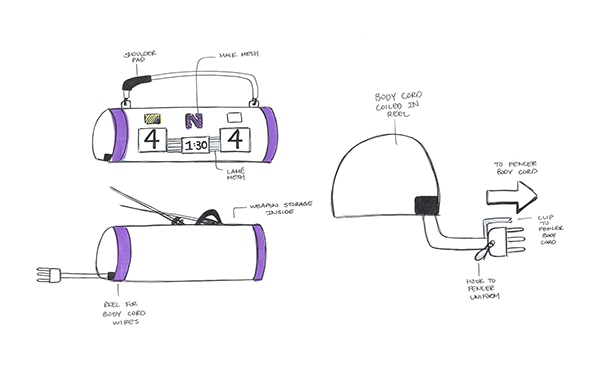 SHOULDER
PAD
MASK MESH
N
4
1:30
4
LAMÉ
MESH
WEAPON STORAGE
INSIDE
REEL FOR
BODY CORD
WIRES
BODY CORD
COILED IN
REEL
TO FENCER
BODY CORD
CLIP
TO
FENCER
BODY
CORD
HOOK TO
FENCER
UNIFORM